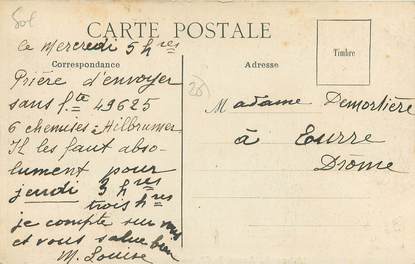 Sol
CARTE POSTALE
Ce Mercredi 5 hres
Correspondance
Adresse
Timbre
Prière d'envoyer
sans fte 49625
6 chemises à Hilbrunner
Il les faut abso-
lument pour
jeudi 3 hres
trois hres
je compte sur vous
et vous salue bien
M. Louise
Madame Demortière
à Eurre
Drome